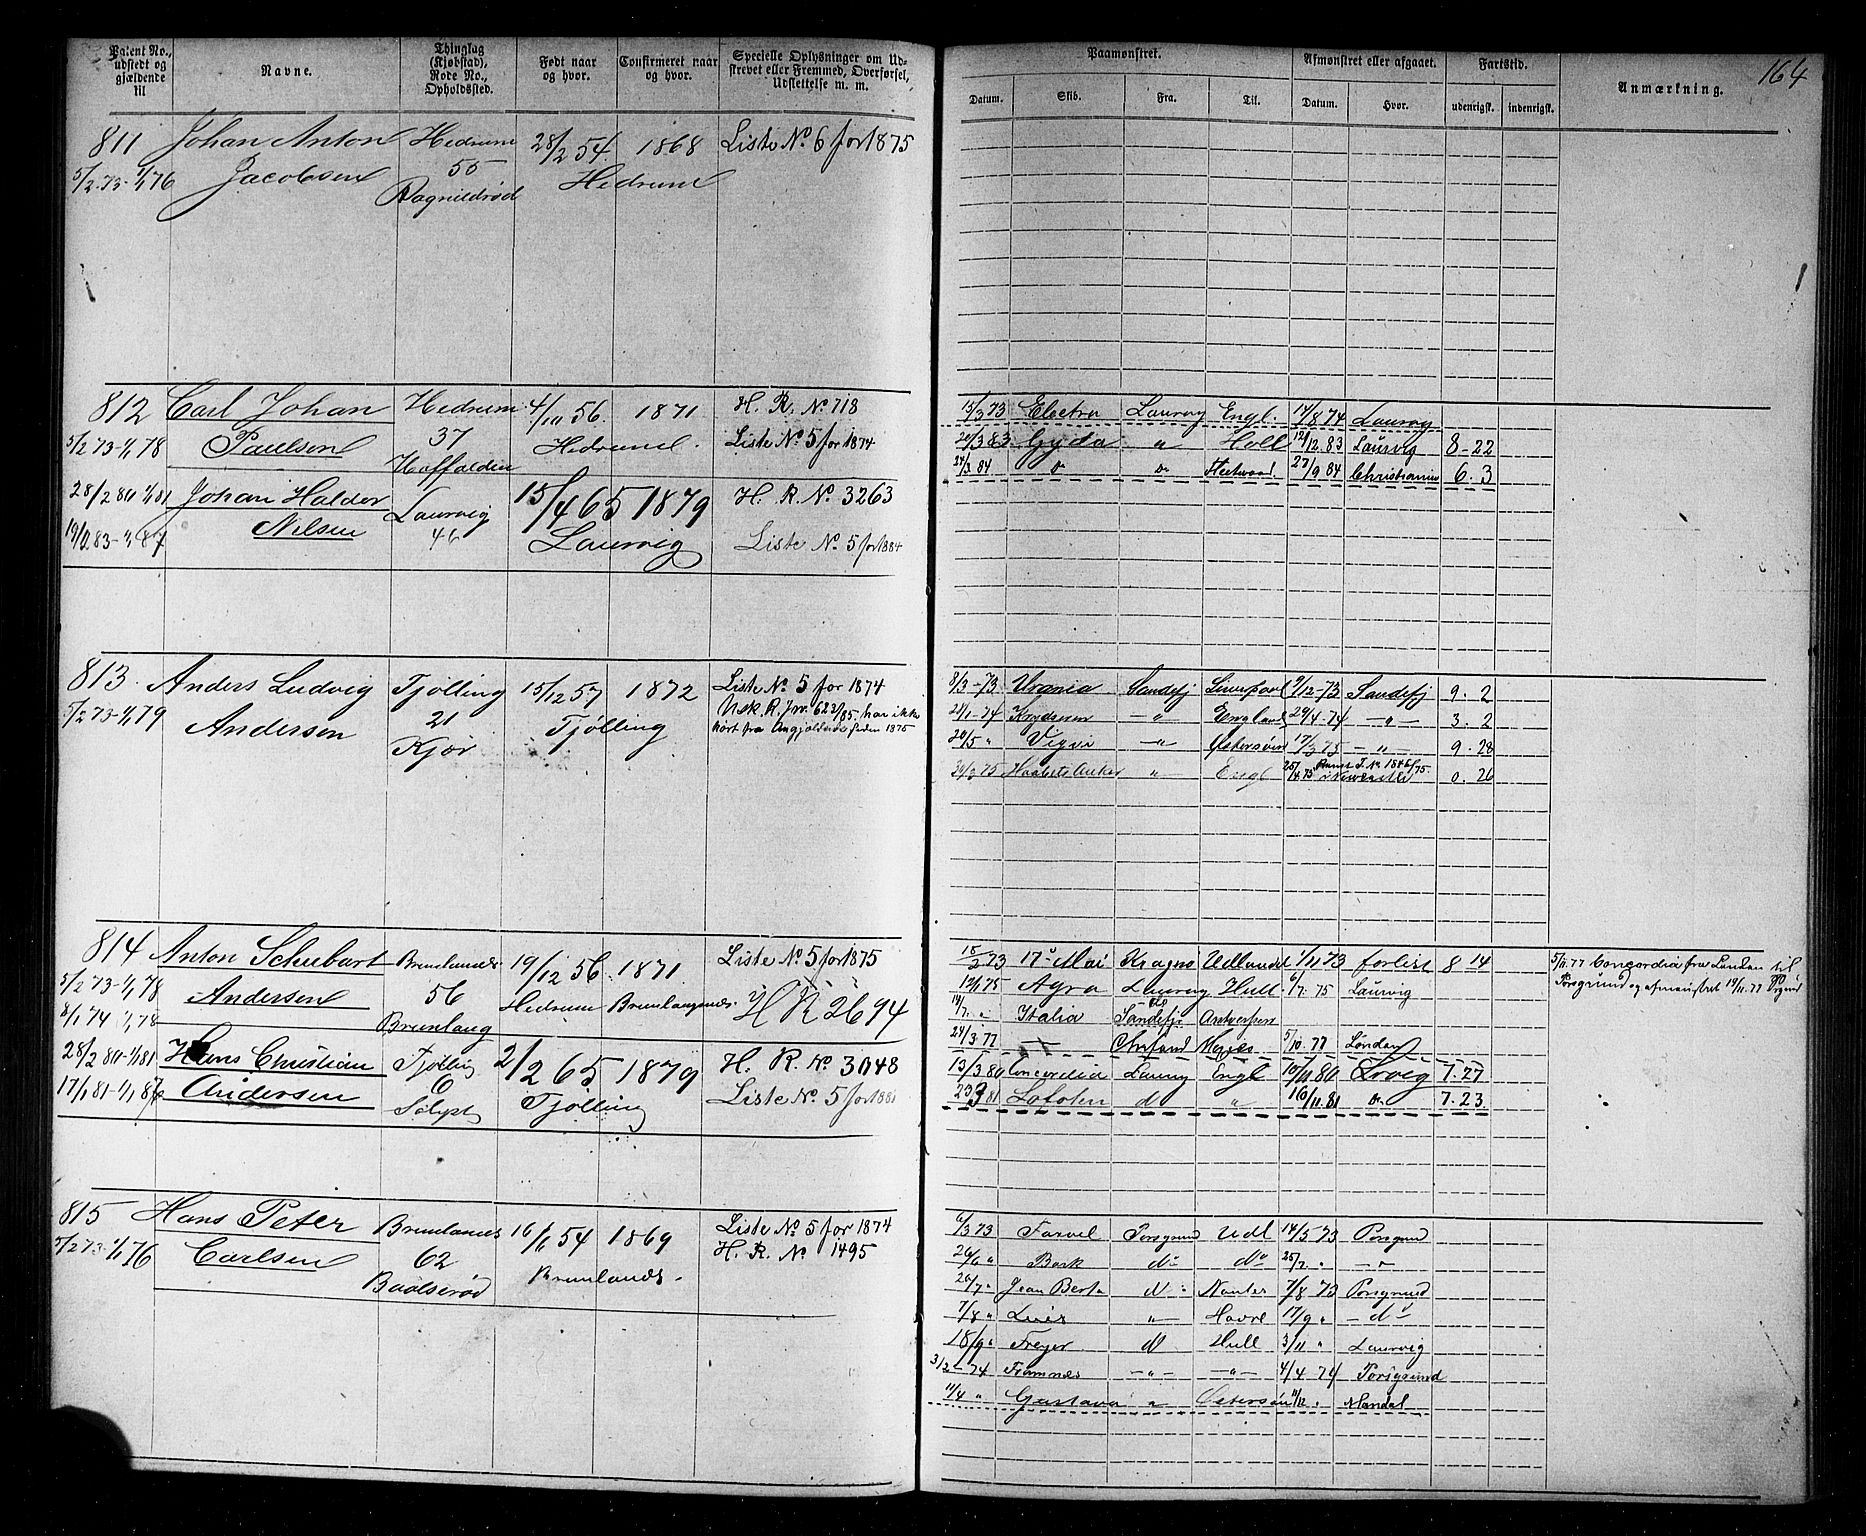 Patent No., udstedt og gjældende til
Navne.
Thinglag (Kjøbstad), Rode No., Opholdssted.
Født naar og hvor.
Confirmeret naar og hvor.
Specielle Oplysninger om Udskrevet eller Fremmed, Overførsel, Udslettelse m. m.
Paamønstret.
Datum. Skib. Fra. Til.
Afmønstret eller afgaaet.
Datum. Hvor.
Fartstid.
udenrigsk. indenrigsk.
Anmærkning.
164
811 Johan Anton Hedrum 28/2 54. 1868 Liste No 6 for 1875
5/2 73-1/1 76 Jacobsen 55 Hedrum
Ragnildrød
812 Carl Johan Hedrum 4/10 56. 1871 H. R. No 718
5/2 73-1/1 78 Paulsen 37 Hedrum. Liste No 5 for 1874
28/2 80-1/1 81 Johan Halder Laurvig 15/4 65 1879 H. R. No 3263
Nilsen 46 Laurvig Liste No 5 for 1884
15/3 73 Electra Laurvig Engl. 14/8 74 Laurvig
Gyda " Holl 12/12 83 Laurvig 8-22
24/3 84 do do 27/9 84 Christiania 6.3
813. Anders Ludvig Tjølling 15/12 57 1872 Liste No 5 for 1874
5/2 73-1/1 79 Andersen 21 Tjølling har ikke
Kjør hørt fra Angjældende siden 1875
8/3-73 Urania Sandefj Liverpool 9/12-73 Sandefj 9.2
England 29/4-74 -"- 3.2
20/5 " -"- Østersøen 17/3 75 -"- 9.28
Haabets Anker " Engl 0.26
814 Anton Schubart Brunlanæs 19/12 56. 1871 Liste No 5 for 1875
5/2 73-1/1 78 Andersen 56 Hedrum Brunlangenæs. H R 2694
8/1 74 1/1 78 Brunlaug
28/2 80-1/1 81 Hans Christian Tjølling 2/2 65 1879 H. R. No 3048
Andersen 6 Tjølling Liste No 5 for 1881
15/2 73 17de Mai Kragerø Udlandet 1/11 73 forlist 8 14
Laurvig Hull 6/7. 75 Laurvig
Italia Sandefj Antwerpen
24/3 77 5/10. 77 London
13/3 80 Concordia Laurvig Engl Lrvig 7.27
Lofoten do " 16/11 81 do 7.23
5/11 77 Concordia fra London til
Porsgrund og afmønstret
815 Hans Peter Brunlanæs 54 1869 Liste No 5 for 1874
5/2 73-1/1 76 Carlsen 62 Brunlanæs. H. R. No 1495
6/3 73 Farvel Porsgrund Udl 14/5 73 Porsgrund
26/6 " do do -"-
do Nantes 7/8 73 Porsgrund
7/8 " -"- Havre 17/9 " - do
18/9 " Freyer do Hull 3/11 " Laurvig
3/2-74 Framnæs -"- -"- 4/4 74 Porsgrund
11/4 " Gustava " Østersøen Mandal